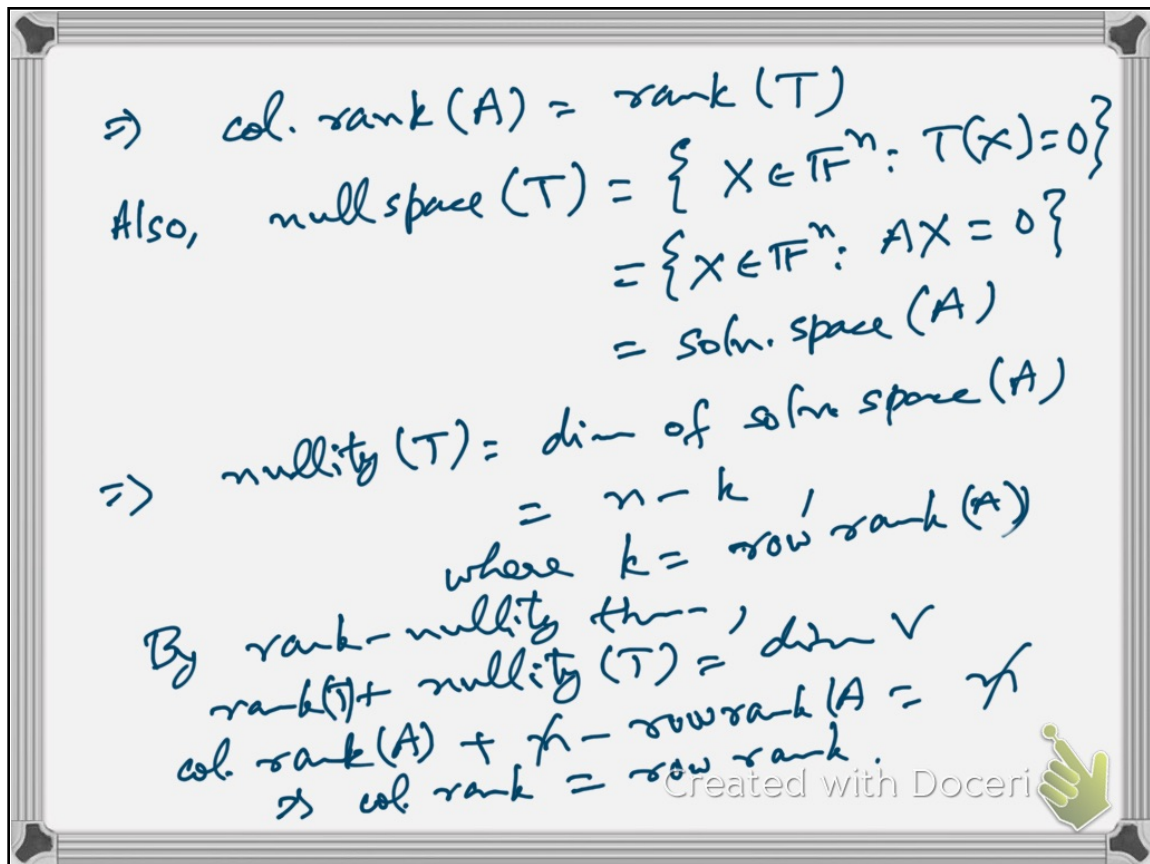 ⇒ col. rank (A) = rank (T)
Also, null space (T) = { X ∈ 𝔽ⁿ : T(X) = 0}
= {X ∈ 𝔽ⁿ : AX = 0}
= soln. space (A)
⇒ nullity (T) = dim of soln. space (A)
= n - k,
where k = row rank (A)
By rank-nullity thm,
rank(T) + nullity (T) = dim V
col. rank (A) + n - row rank (A = n
⇒ col. rank = row rank.
Created with Doceri